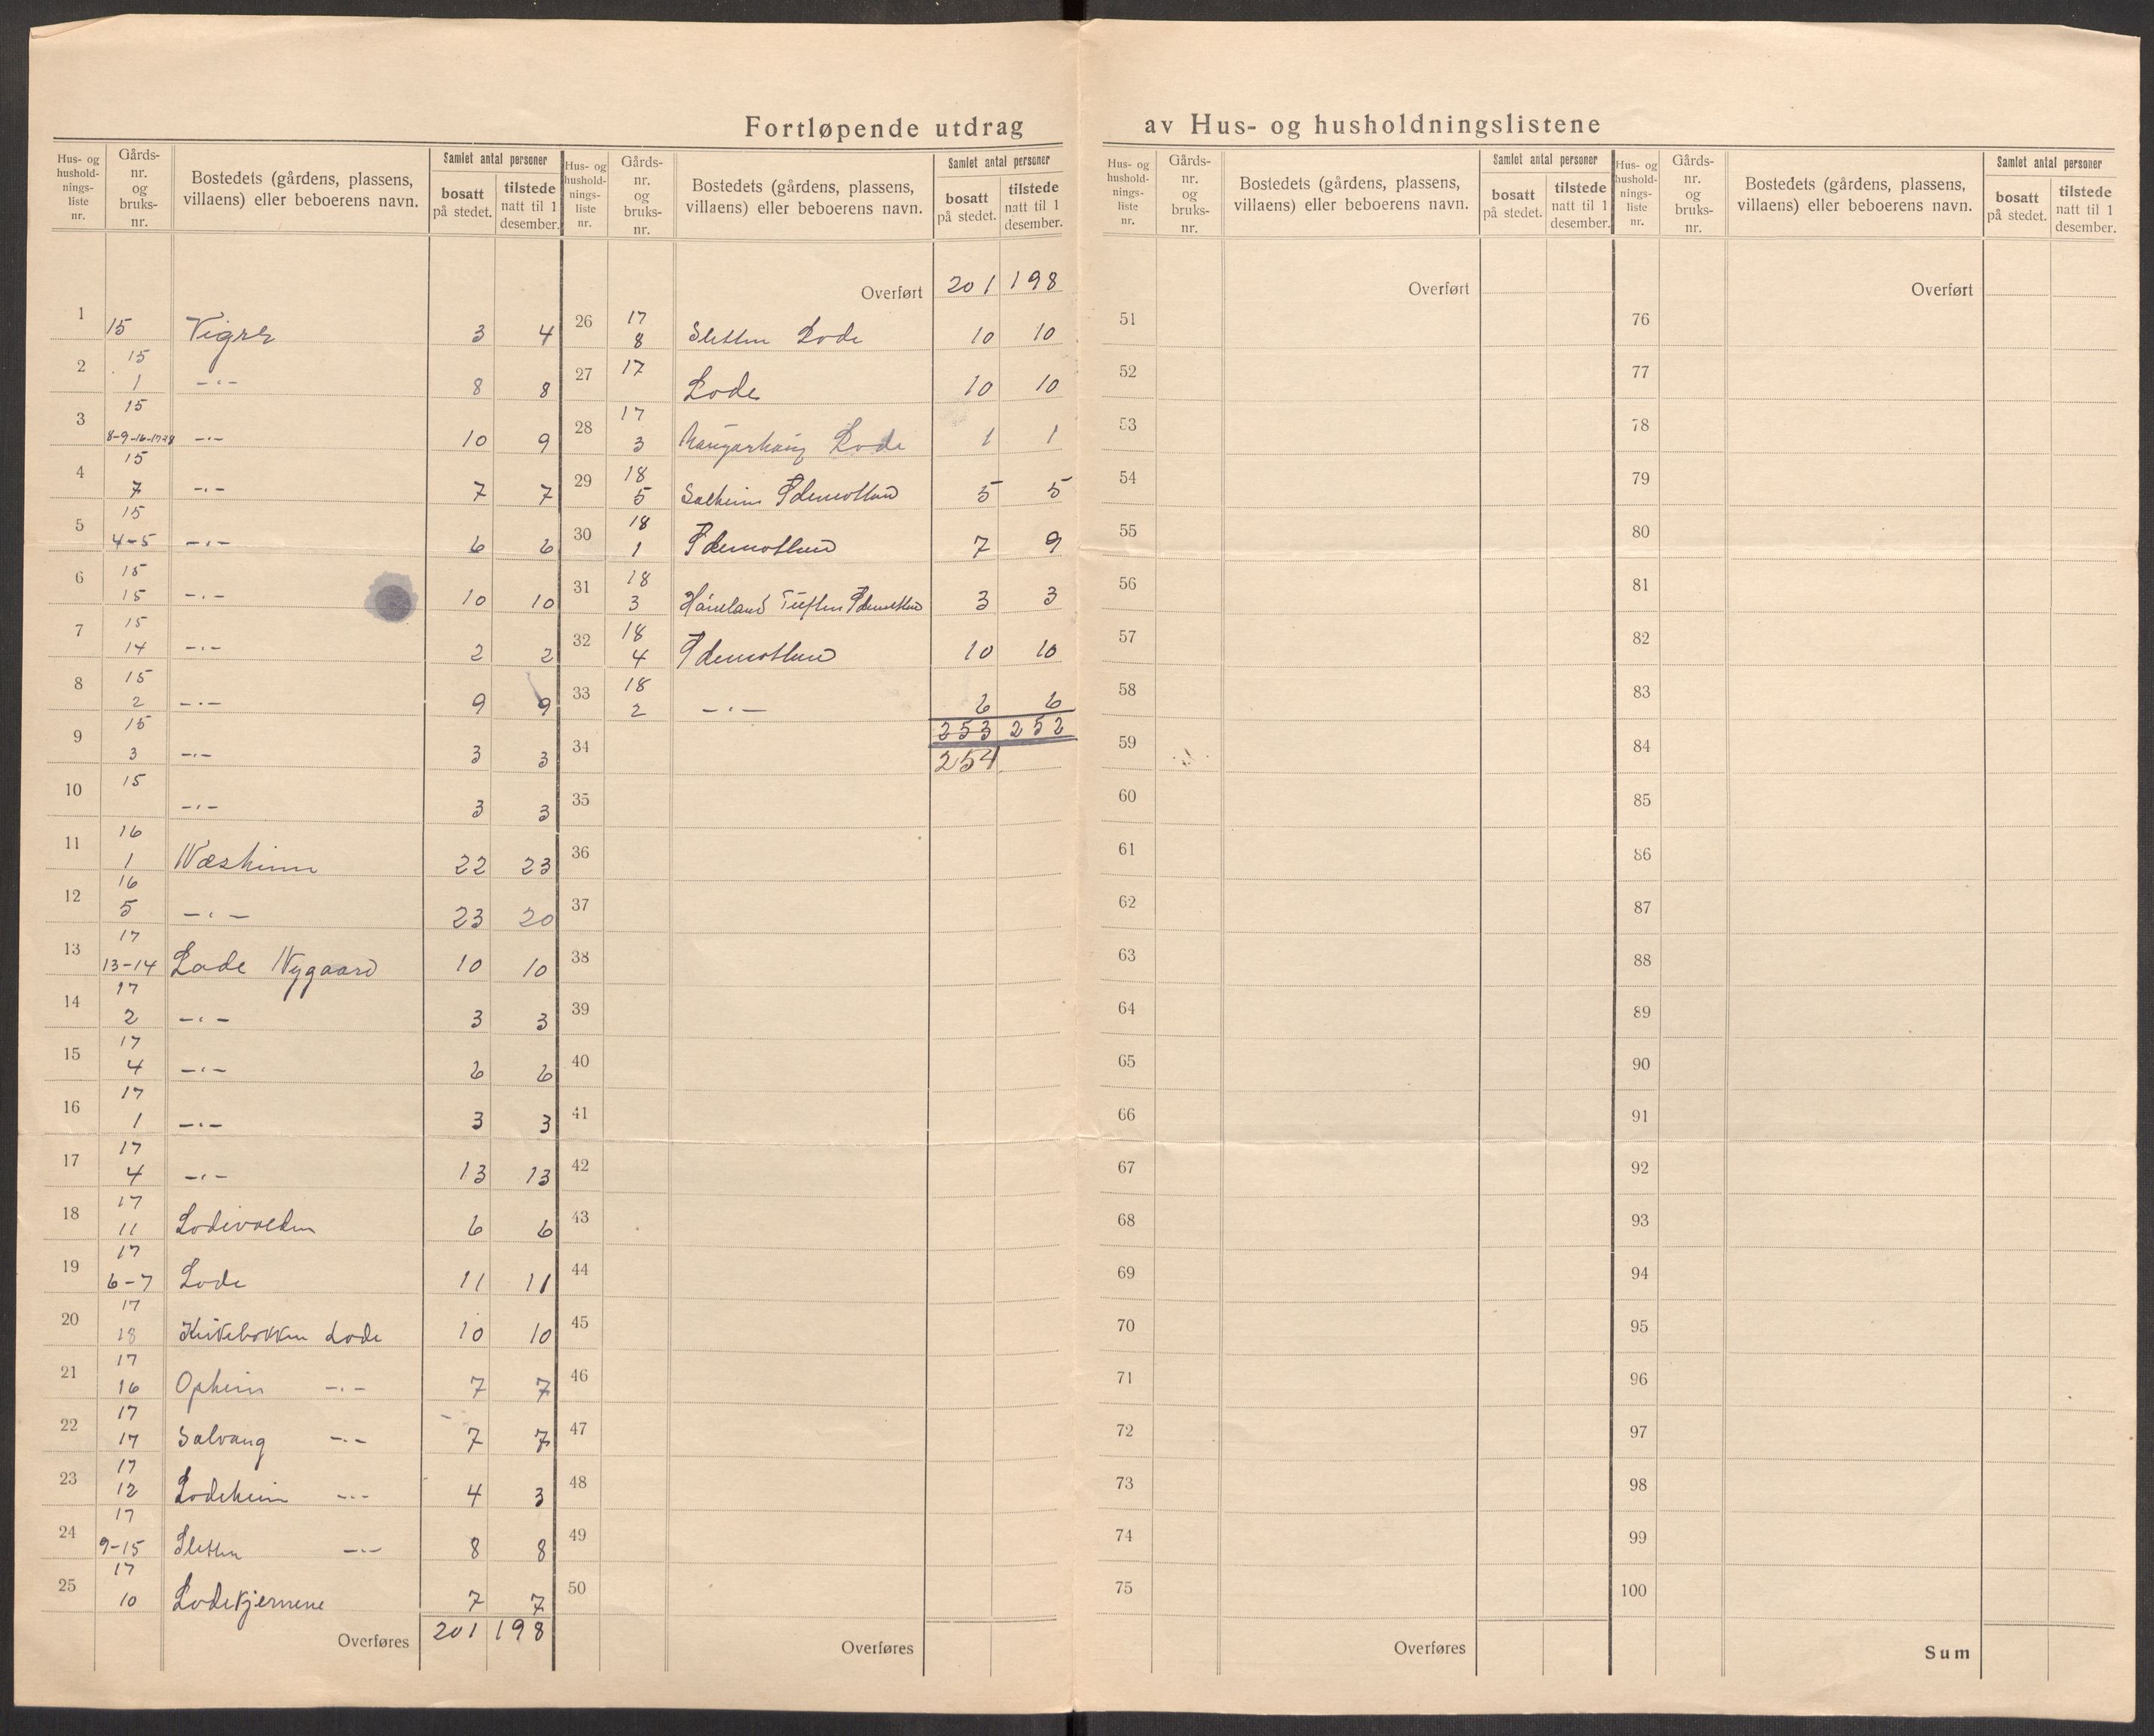 Fortløpende utdrag av Hus- og husholdningslistene
Hus- og hushold-nings-liste nr. | Gårds-nr. og bruks-nr. | Bostedets (gårdens, plassens, villaens) eller beboerens navn. | Samlet antal personer | bosatt på stedet. | tilstede natt til 1 desember.
1 | 15 | Vigre | 3 | 4
2 | 15 1 | -"- | 8 | 8
3 | 15 8-9-16-17-18 | -"- | 10 | 9
4 | 15 7 | -"- | 7 | 7
5 | 15 4-5 | -"- | 6 | 6
6 | 15 15 | -"- | 10 | 10
7 | 15 14 | -"- | 2 | 2
8 | 15 2 | -"- | 9 | 9
9 | 15 3 | -"- | 3 | 3
10 | 15 | -"- | 3 | 3
11 | 16 1 | Næsheim | 22 | 23
12 | 16 5 | -"- | 23 | 20
13 | 17 13-14 | Lode Nygaard | 10 | 10
14 | 17 2 | -"- | 3 | 3
15 | 17 4 | -"- | 6 | 6
16 | 17 1 | -"- | 3 | 3
17 | 17 4 | -"- | 13 | 13
18 | 17 11 | Lodevolden | 6 | 6
19 | 17 6-7 | Lode | 11 | 11
20 | 17 18 | Kirkebakken Lode | 10 | 10
21 | 17 16 | Opheim -"- | 7 | 7
22 | 17 17 | Solvang -"- | 7 | 7
23 | 17 12 | Lodeheim -"- | 4 | 3
24 | 17 9-15 | Sletten -"- | 8 | 8
25 | 17 10 | Lodekjernene | 7 | 7
Overføres | 201 | 198
Hus- og hushold-nings-liste nr. | Gårds-nr. og bruks-nr. | Bostedets (gårdens, plassens, villaens) eller beboerens navn. | Samlet antal personer | bosatt på stedet. | tilstede natt til 1 desember.
Overført | 201 | 198
26 | 17 8 | Sletten Lode | 10 | 10
27 | 17 | Lode | 10 | 10
28 | 17 3 | Lode | 1 | 1
29 | 18 5 | Solheim | 5 | 5
30 | 18 1 | 7 | 9
31 | 18 3 | 3 | 3
32 | 18 4 | 10 | 10
33 | 18 2 | -"- | 6 | 6
253 | 252
34 | 254
35
36
37
38
39
40
41
42
43
44
45
46
47
48
49
50
Overføres
Hus- og hushold-nings-liste nr. | Gårds-nr. og bruks-nr. | Bostedets (gårdens, plassens, villaens) eller beboerens navn. | Samlet antal personer | bosatt på stedet. | tilstede natt til 1 desember.
Overført
51
52
53
54
55
56
57
58
59
60
61
62
63
64
65
66
67
68
69
70
71
72
73
74
75
Overføres
Hus- og hushold-nings-liste nr. | Gårds-nr. og bruks-nr. | Bostedets (gårdens, plassens, villaens) eller beboerens navn. | Samlet antal personer | bosatt på stedet. | tilstede natt til 1 desember.
Overført
76
77
78
79
80
81
82
83
84
85
86
87
88
89
90
91
92
93
94
95
96
97
98
99
100
Sum